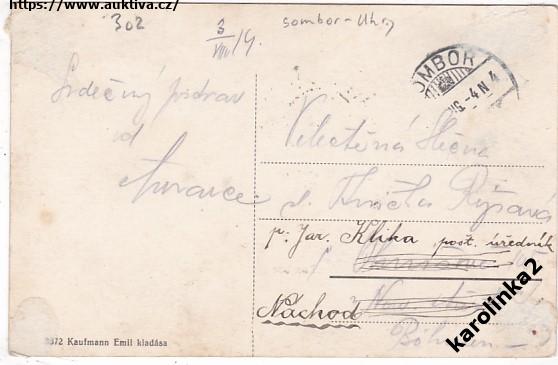 https://www.auktiva.cz/
302
3/VIII 14.
sombor-Uhry
SOMBOR
AUG. -4 N 4
Srdečný pozdrav
od
Velectěná slečna
sl. Anička Ryšavá
p. Jar. Klika, pošt. úředník
Náchod
Böhmen
3372 Kaufmann Emil kiadása
karolinka2